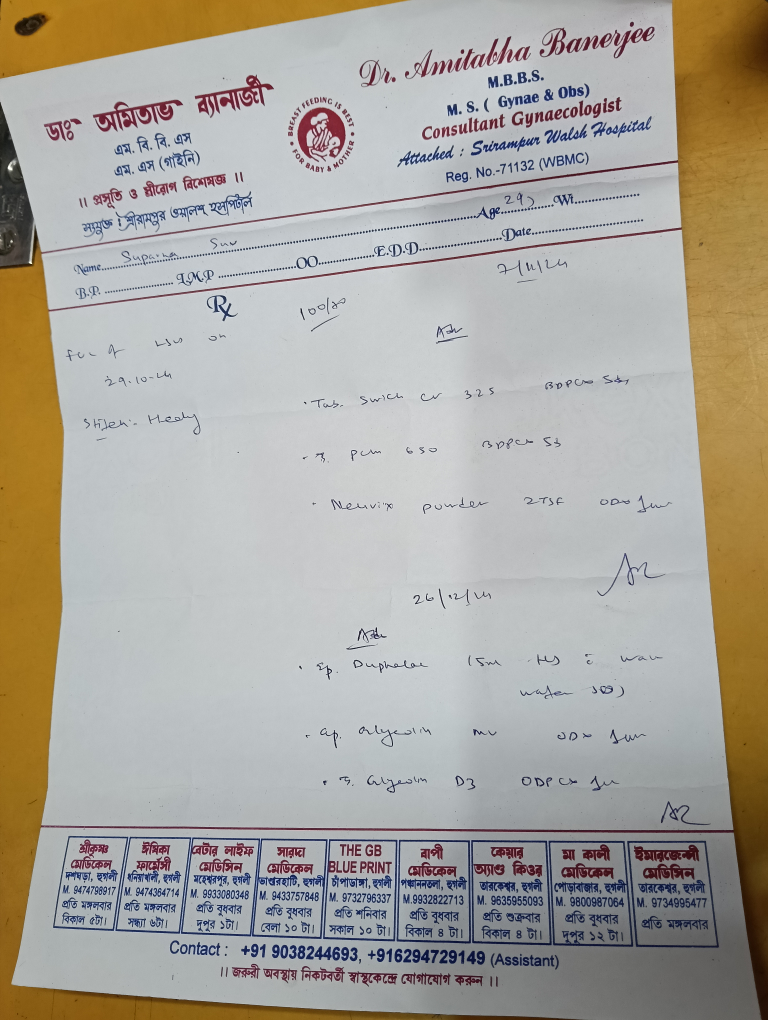 ডাঃ অমিতাভ ব্যানার্জী
এম. বি. বি. এস
এম. এস (গাইনি)
।। প্রসূতি ও স্ত্রীরোগ বিশেষজ্ঞ ।।
সংযুক্ত : শ্রীরামপুর ওয়ালশ হসপিটাল
BREAST FEEDING IS BEST
FOR BABY & MOTHER
Dr. Amitabha Banerjee
M.B.B.S.
M. S. ( Gynae & Obs)
Consultant Gynaecologist
Attached : Srirampur Walsh Hospital
Reg. No.-71132 (WBMC)
Name Suparna Age 29 Wt.
B.P. L.M.P OO E.D.D. Date
7/11/24
Rx 100/70
on
29.10.24
Adv
Tab. CV 325 BDPC x 5d
T. PCM 650 BDPC x 5d
powder 2TSF OD x
26/12/24
Adv
Sp. Duphalac 15ml HS
water
OD x
D3 ODPC x
শ্রীকৃষ্ণ মেডিকেল
দশঘড়া, হুগলী
M. 9474798917
প্রতি মঙ্গলবার
বিকাল ৫টা।
ঈষিকা ফার্মেসী
ধনিয়াখালী, হুগলী
M. 9474364714
প্রতি মঙ্গলবার
সন্ধ্যা ৬টা।
বেটার লাইফ মেডিসিন
মহেশ্বরপুর, হুগলী
M. 9933080348
প্রতি বুধবার
দুপুর ১টা।
সারদা মেডিকেল
ভাণ্ডারহাটি, হুগলী
M. 9433757848
প্রতি বুধবার
বেলা ১০ টা।
THE GB BLUE PRINT
চাঁপাডাঙ্গা, হুগলী
M. 9732796337
প্রতি শনিবার
সকাল ১০ টা।
বাপী মেডিকেল
পঞ্চাননতলা, হুগলী
M.9932822713
প্রতি বুধবার
বিকাল ৪ টা।
কেয়ার অ্যাণ্ড কিওর
তারকেশ্বর, হুগলী
M. 9635955093
প্রতি শুক্রবার
বিকাল ৪ টা।
মা কালী মেডিকেল
পোড়াবাজার, হুগলী
M. 9800987064
প্রতি বুধবার
দুপুর ১২ টা।
ইমারজেন্সী মেডিসিন
তারকেশ্বর, হুগলী
M. 9734995477
প্রতি মঙ্গলবার
Contact : +91 9038244693, +916294729149 (Assistant)
।। জরুরী অবস্থায় নিকটবর্তী স্বাস্থ্যকেন্দ্রে যোগাযোগ করুন ।।